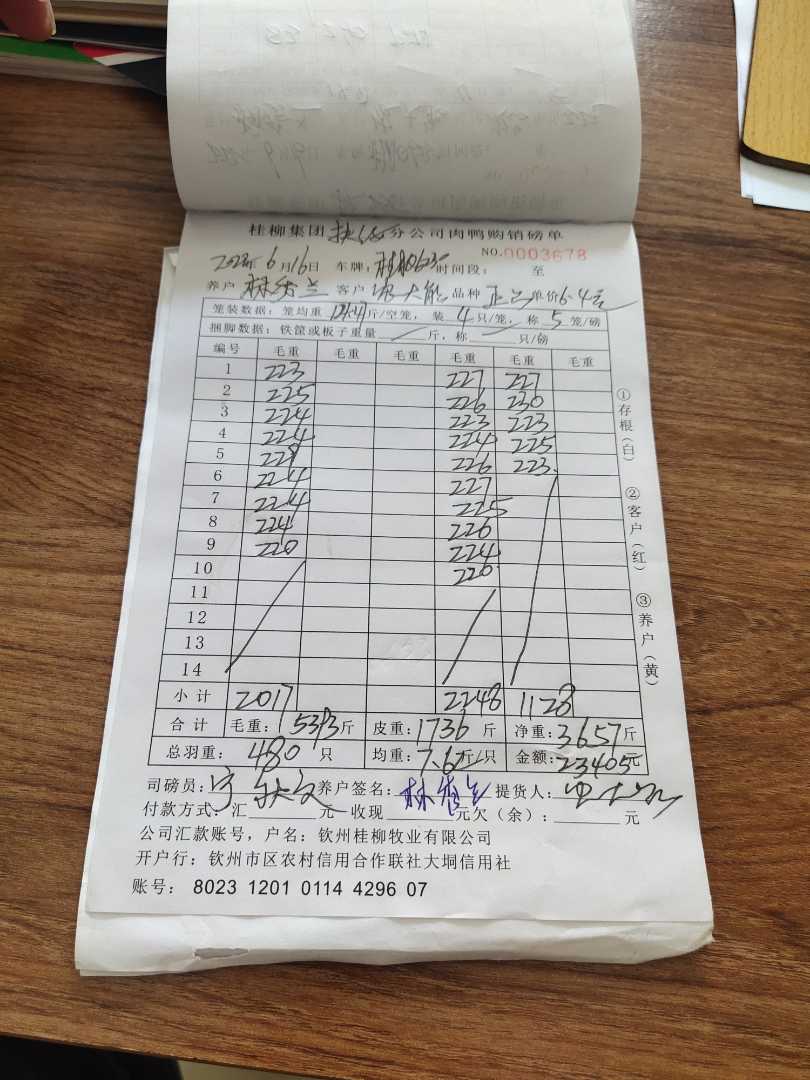 桂柳集团 扶绥 分公司肉鸭购销磅单
NO.0003678
2022年 6月16日 车牌: 时间段: 至
养户 林秀兰 客户 品种 单价 6.4元
笼装数据: 笼均重 斤/空笼, 装 4 只/笼, 称 5 笼/磅
捆脚数据: 铁筐或板子重量 斤, 称 只/磅
编号 毛重 毛重 毛重 毛重 毛重 毛重
1 223 227 227
2 225 226 230
3 224 223 223
4 224 224 225
5 229 226 223
6 224 227
7 224 225
8 224 226
9 220 224
10 220
11
12
13
14
小计 2017 2248 1128
合计 毛重: 5393斤 皮重: 1736 斤 净重: 3657斤
总羽重: 480 只 均重: 7.62斤/只 金额: 23405元
司磅员: 养户签名: 林秀兰 提货人:
付款方式: 汇 元 收现 元欠(余): 元
公司汇款账号, 户名: 钦州桂柳牧业有限公司
开户行: 钦州市区农村信用合作联社大垌信用社
账号: 8023 1201 0114 4296 07
①存根(白)
②客户(红)
③养户(黄)